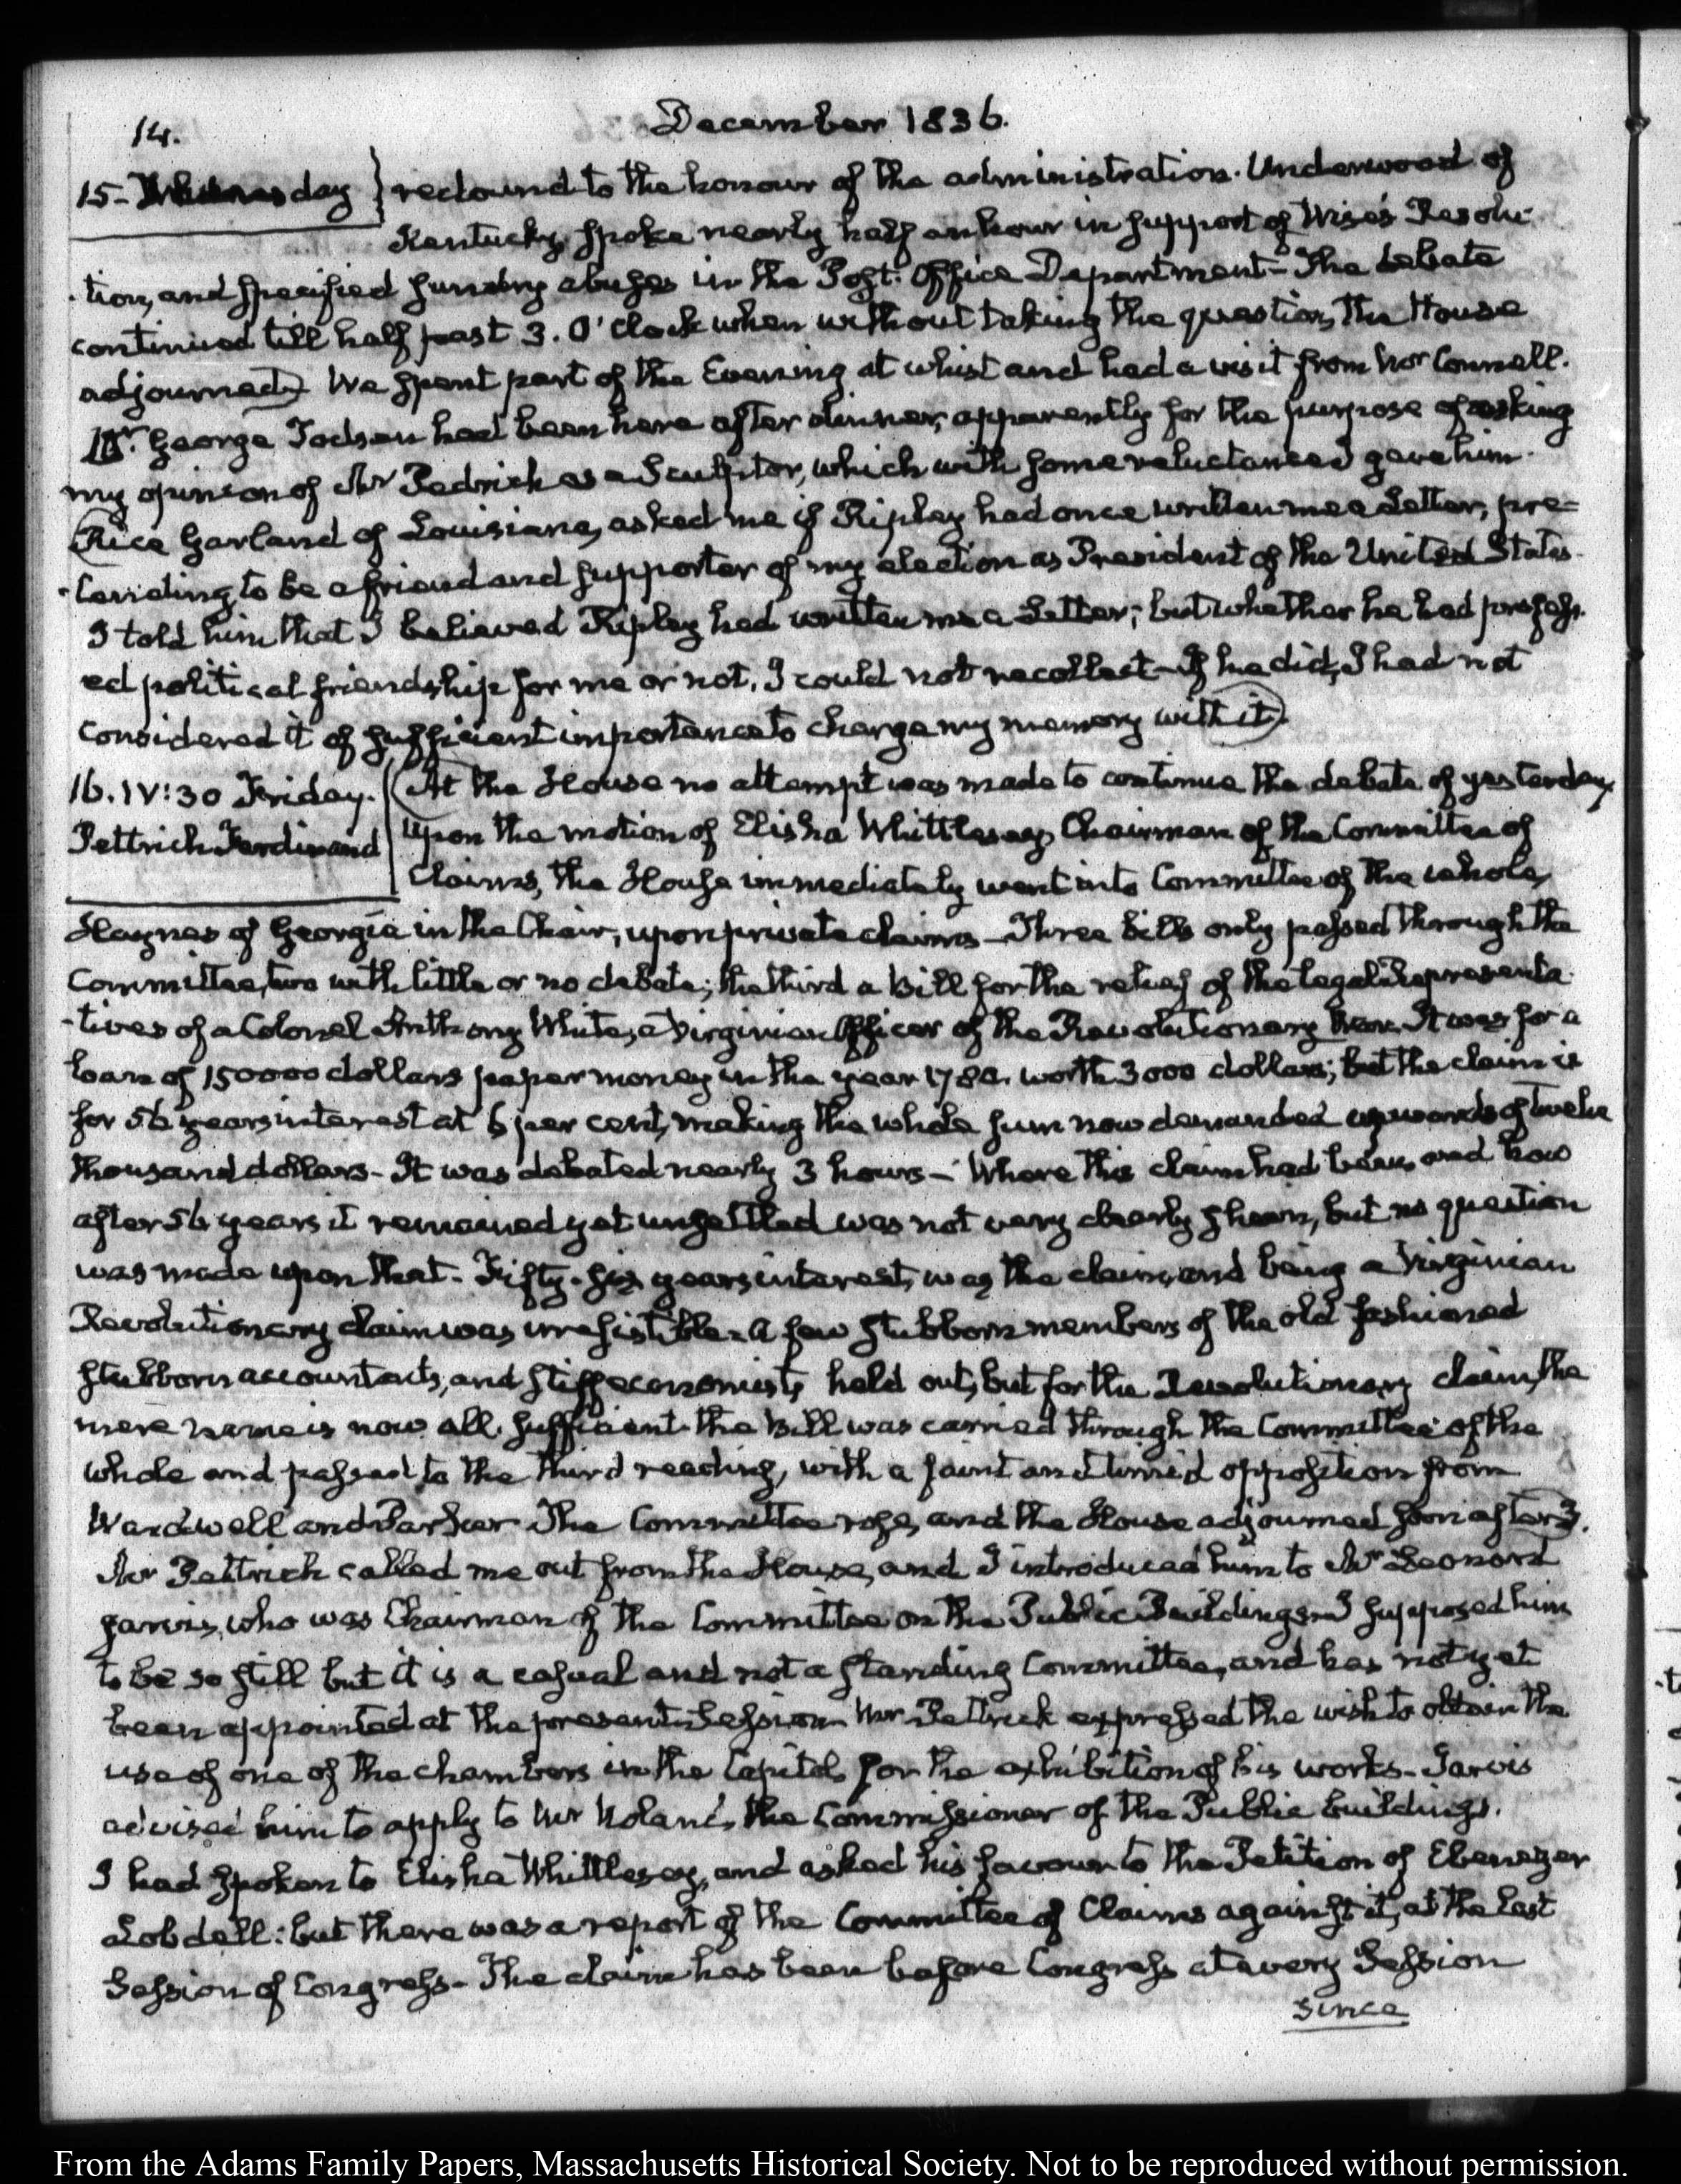 14.
December 1836.
15 - day } redound to the honour of the administration. Underwood of
Kentucky, spoke nearly half an hour in support of Wise's Resolu-
tion, and specified sundry abuses in the Post-Office Department - The debate
continued till half past 3. O'Clock when without taking the question, the House
adjourned) We spent part of the Evening at whist and had a visit from Mr Connell.
Mr. George Todsen had been here after dinner, apparently for the purpose of asking
my opinion of Mr Pedrick as a Sculptor, which with some reluctance I gave him.
(Rice Garland of Louisiana, asked me if Ripley had once written me a Letter, pre=
-tending to be a friend and supporter of my election as President of the United States.
I told him that I believed Ripley had written me a Letter; but whether he had profess-
ed political friendship for me or not, I could not recollect - If he did, I had not
considered it of sufficient importance to charge my memory with it)
16. IV:30 Friday.
Pettrich Ferdinand
(At the House no attempt was made to continue the debate of yesterday,
upon the motion of Elisha Whittlesey, Chairman of the Committee of
Claims, the House immediately went into Committee of the whole,
Haynes of Georgia in the Chair, upon private claims - Three bills only passed through the
Committee, two with little or no debate; the third a Bill for the relief of the legal Representa-
-tives of a Colonel Anthony White, a Virginian Officer of the Revolutionary War. It was for a
loan of 150000 dollars paper money in the year 1780. worth 3000 dollars; but the claim is
for 56 years interest at 6 per cent, making the whole sum now demanded upwards of twelve
thousand dollars - It was debated nearly 3 hours - Where this claim had been, and how
after 56 years it remained yet unsettled was not very clearly shewn, but no question
was made upon that - Fifty-six years interest, was the claim, and being a Virginian
Revolutionary claim was irresistible - a few stubborn members of the old fashioned
stubborn accountants, and stiff economists, held out, but for the Revolutionary claim, the
mere name is now all sufficient - the Bill was carried through the Committee of the
whole and passed to the third reading, with a faint and timid opposition from
Wardwell and Parker The Committee rose, and the House adjourned soon after 3.
Mr Pettrich called me out from the House, and I introduced him to Mr Leonard
Jarvis, who was Chairman of the Committee on the Public Buildings - I supposed him
to be so still but it is a casual and not a standing Committee, and has not yet
been appointed at the present Session - Mr Pettrick expressed the wish to obtain the
use of one of the chambers in the Capitol, for the exhibition of his works - Jarvis
advised him to apply to Mr Noland, the Commissioner of the Public buildings.
I had spoken to Elisha Whittlesey, and asked his favour to the Petition of Ebenezer
Lobdell: but there was a report of the Committee of Claims against it, at the last
Session of Congress - The claim has been before Congress at every Session
since
From the Adams Family Papers, Massachusetts Historical Society. Not to be reproduced without permission.